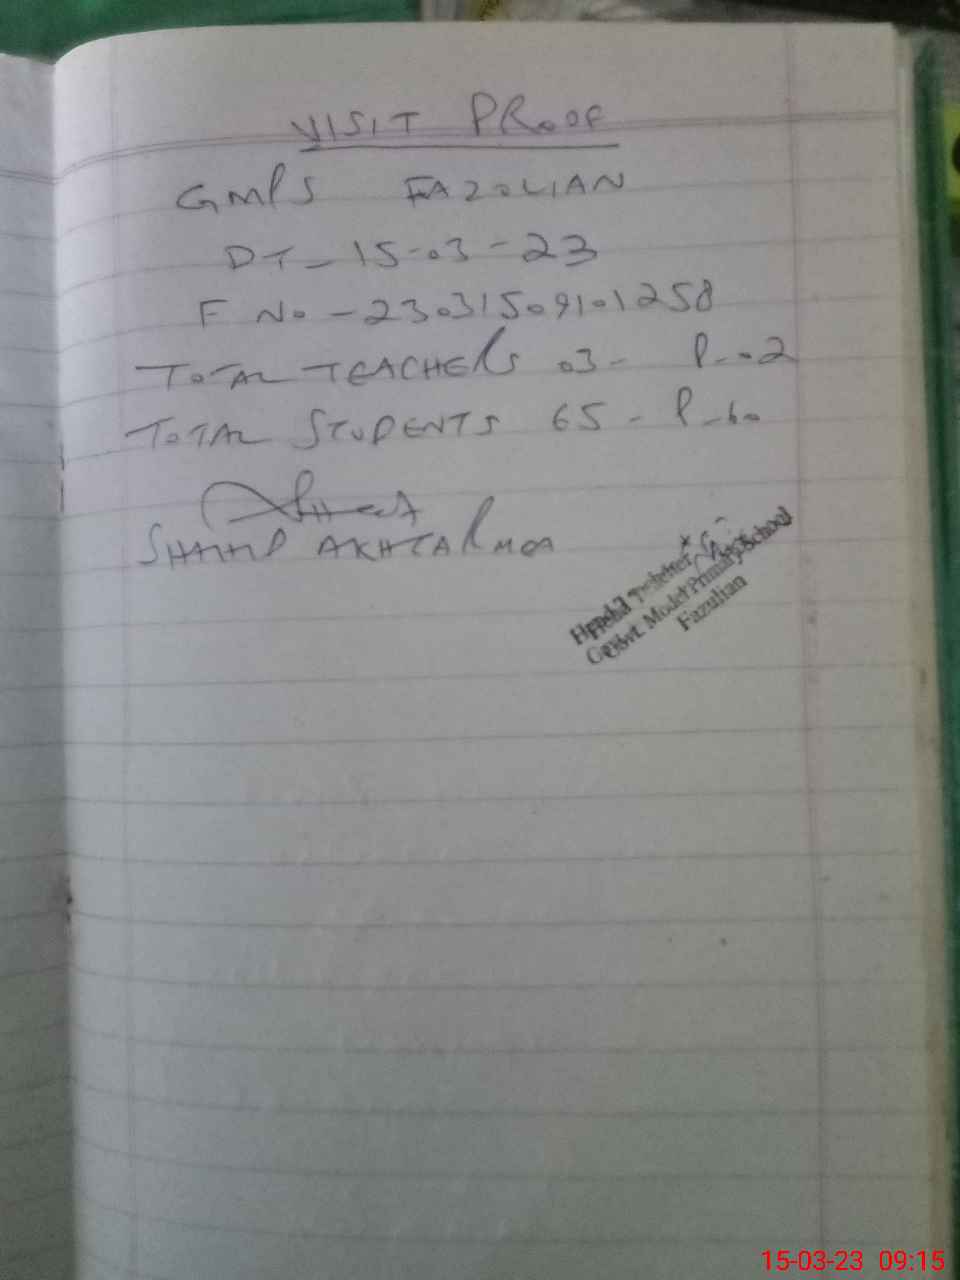 VISIT PROOF
GMPS FAZOLIAN
DT - 15-03-23
F No - 23031509101258
TOTAL TEACHERS 03 - P-02
TOTAL STUDENTS 65 - P-60
SHAHID AKHTAR MEA
Head Teacher
Govt. Model Primary School
Fazulian
15-03-23 09:15